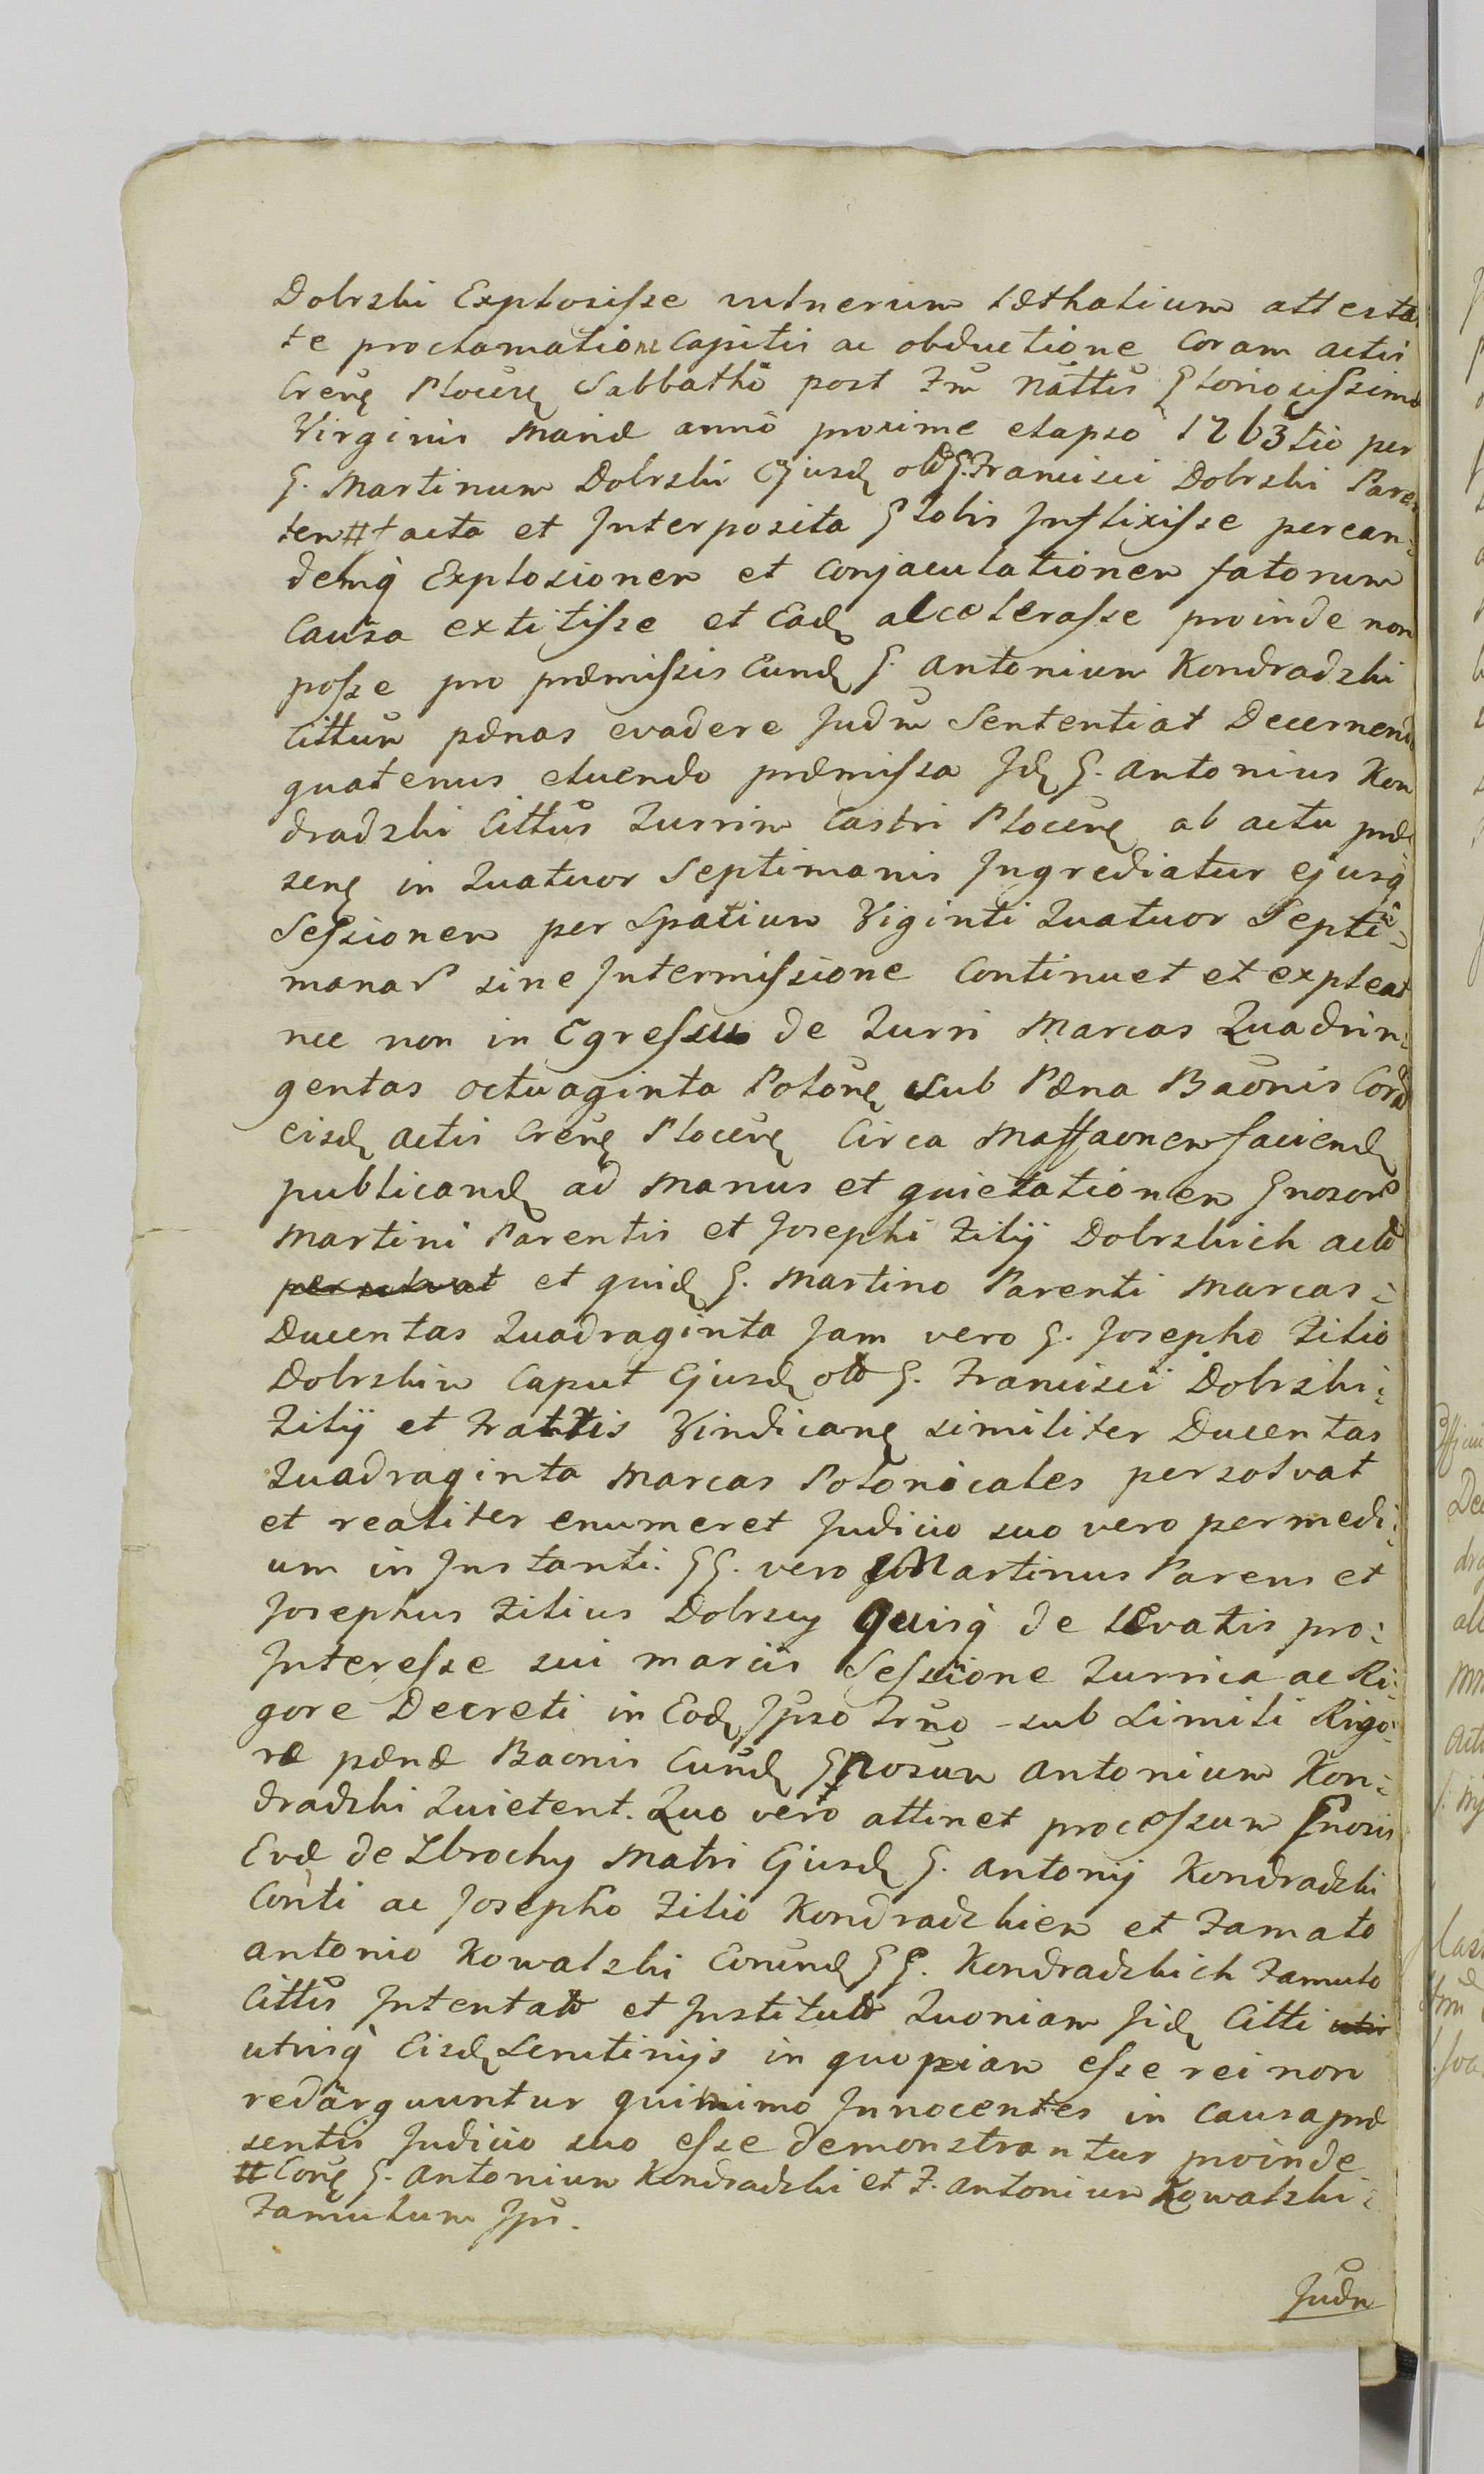 Dobrski Explosisse vulnerum læthalium attesta
te proclamatione Capitis ac obductione Coram actis
Crenę Plocenę Sabbatho post Fm Nattis Gloriosissimæ
Virginis Mariæ anno proxime elapso 1763tio per
G. Martinum Dobrski Ejusdę olim G. Francisci Dobrski Paren
tem # facta et Interposita Globis Inflixisse per ean:
demq̀ Explosionem et Conjaculationem fatorum
Causa extitisse et Eadę accelerasse proinde non
posse pro præmissis Eundę G. Antonium Kondradzki
Cittum pænas evadere Judm Sententiat Decernendo
quatenus eluendo præmissa Jdę G. Antonius Kon
dradzki Cittus Turrim Castri Plocenę ab actu præ
senę in Quatuor Septimanis Jngrediatur ejusq̀
Sessionem per Spatium Viginti Quatuor Septi:
manar sine Intermissione Continuet et expleat
nec non in Egressu de Turri Marcas Quadrin:
gentas octuaginta Polonę Sub Pæna Baonis Coram
eisdę actis Crenę Plocenę Circa Maffaonem faciendę
publicandę ad manus et quietationem Gnosor
Martini Parentis et Josephi Filij Dobrskich actor
persolvat et quidę G. Martino Parenti Marcas:
Ducentas Quadraginta Jam vero G. Josepho Filio
Dobrskim Caput Ejusdę olim G. Francisci Dobrski:
Filij et Frattis Vindicanę similiter Ducentas
Quadraginta Marcas Polonicales persolvat
et realiter enumeret Judicio suo vero per medi:
um in Instanti. GG. vero Martinus Parens et
Josephus Filius Dobrscy Quisq̀ de lævatis pro:
Interesse sui marcis Sessione Turrica ac Ri:
gore Decreti in Eodę Ipso Trno sub Simili Rigo:
re pænæ Baonis Eundę Gnosum Antonium Kon:
dradzki Quietent. Quo vero attinet processum Gnosis
Evæ de Zbrochy Matri Ejusdę G. Antonij Kondradzki
Conti ac Josepho Filio Kondradzkiem et Famato
Antonio Kowalski Eorundę GG. Kondradzkich Famulo
Cittis Intentatum et Institutum Quoniam Jidę Citti
utriq̀ Eisdę Scrutinijs in quopiam esse rei non
redarguuntur quinimo Innocentes in causa præ
sentis Judicio suo esse demonstrantur proinde
# Conę G. Antonium Kondradzki et F. Antonium Kowalski:
Famulum Jps.
Judm